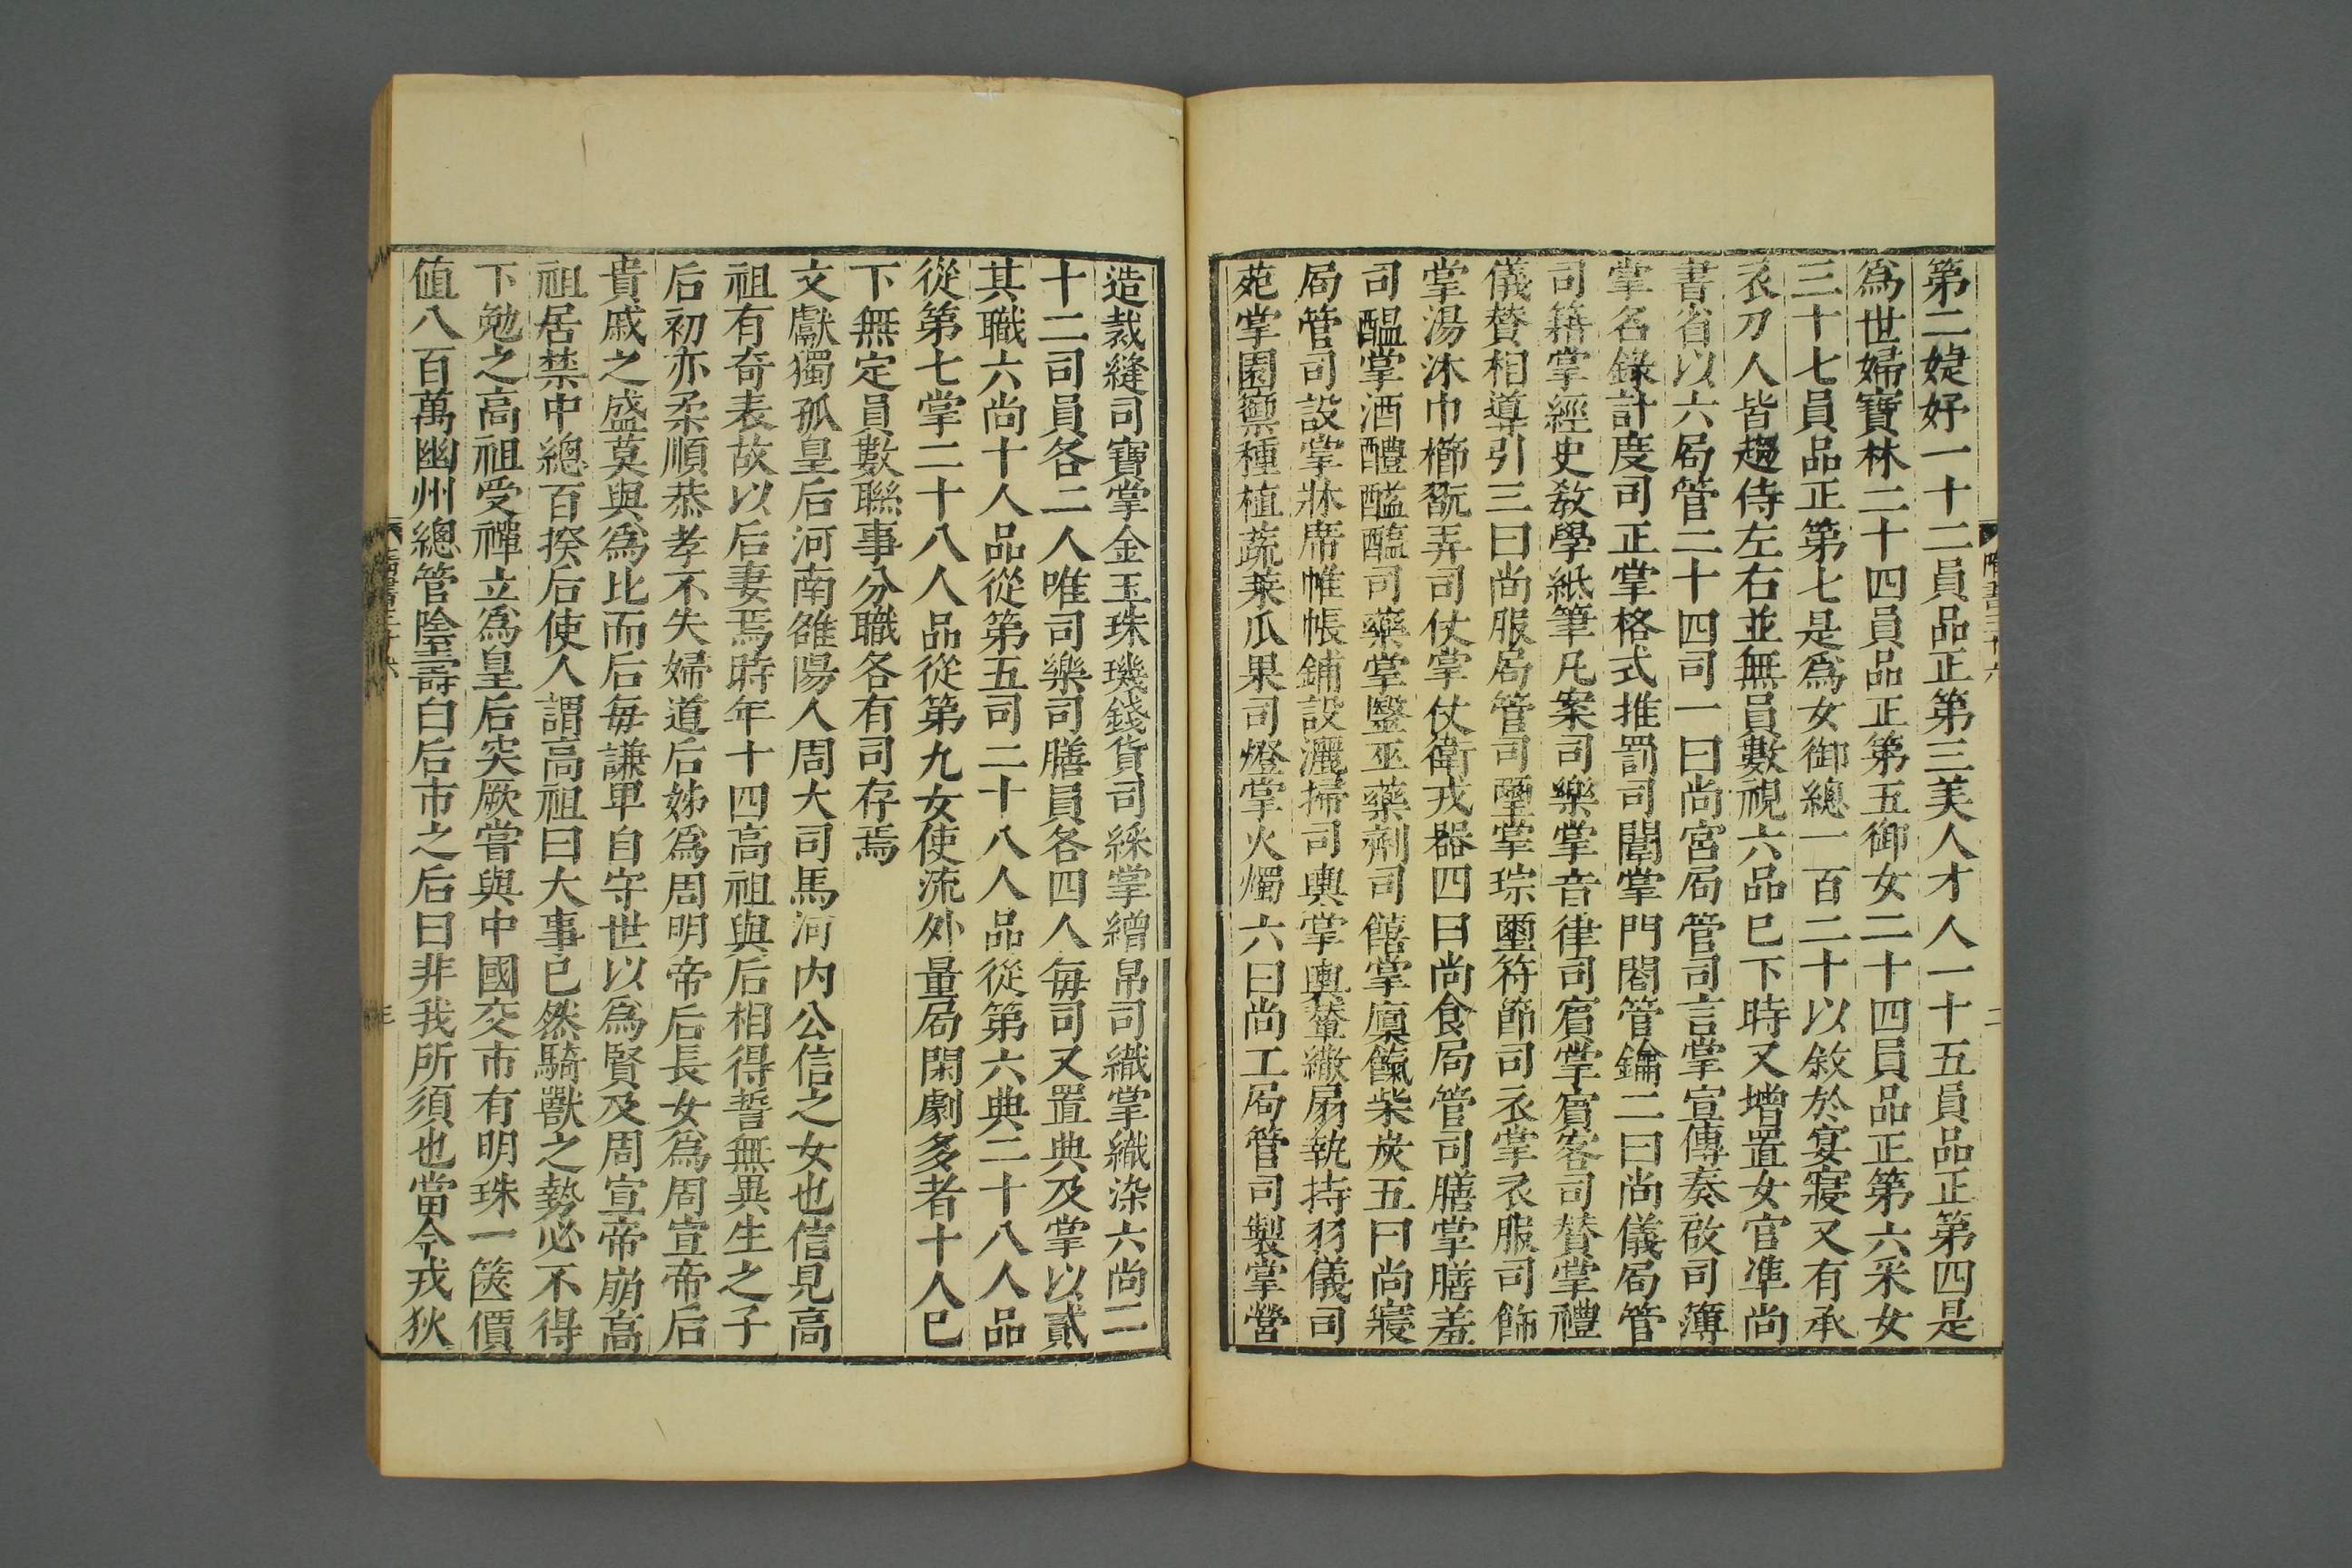 第二婕妤一十二員品正第三美人才人一十五員品正第四是
爲世婦寶林二十四員品正第五御女二十四員品正第六采女
三十七員品正第七是爲女御總一百二十以敘於宴寢又有承
衣刀人皆趨侍左右並無員數視六品已下時又增置女官準尚
書省以六局管二十四司一曰尚宮局管司言掌宣傳奏啟司簿
掌名錄計度司正掌格式推罰司闈掌門閤管鑰二曰尚儀局管
司籍掌經史教學紙筆几案司樂掌音律司賓掌賓客司贊掌禮
儀贊相導引三曰尚服局管司璽掌琮璽符節司衣掌衣服司飾
掌湯沐巾櫛翫弄司仗掌仗衛戎器四曰尚食局管司膳掌膳羞
司醞掌酒醴醢醯司藥掌毉巫藥劑司饎掌廩餼柴炭五曰尚寢
局管司設掌牀席帷帳鋪設灑掃司輿掌輿輦繖扇執持羽儀司
苑掌園籞種植蔬菜瓜果司燈掌火燭六曰尚工局管司製掌營
隋書三十六
二
造裁縫司寶掌金玉珠璣錢貨司綵掌繒帛司織掌織染六尚二
十二司員各二人唯司樂司膳員各四人每司又置典及掌以貳
其職六尚十人品從第五司二十八人品從第六典二十八人品
從第七掌二十八人品從第九女使流外量局閑劇多者十人已
下無定員數聯事分職各有司存焉
文獻獨孤皇后河南雒陽人周大司馬河内公信之女也信見高
祖有奇表故以后妻焉時年十四高祖與后相得誓無異生之子
后初亦柔順恭孝不失婦道后姊爲周明帝后長女爲周宣帝后
貴戚之盛莫與爲比而后每謙卑自守世以爲賢及周宣帝崩高
祖居禁中總百揆后使人謂高祖曰大事已然騎獸之勢必不得
下勉之高祖受禪立爲皇后突厥嘗與中國交市有明珠一篋價
值八百萬幽州總管陰壽白后市之后曰非我所須也當今戎狄